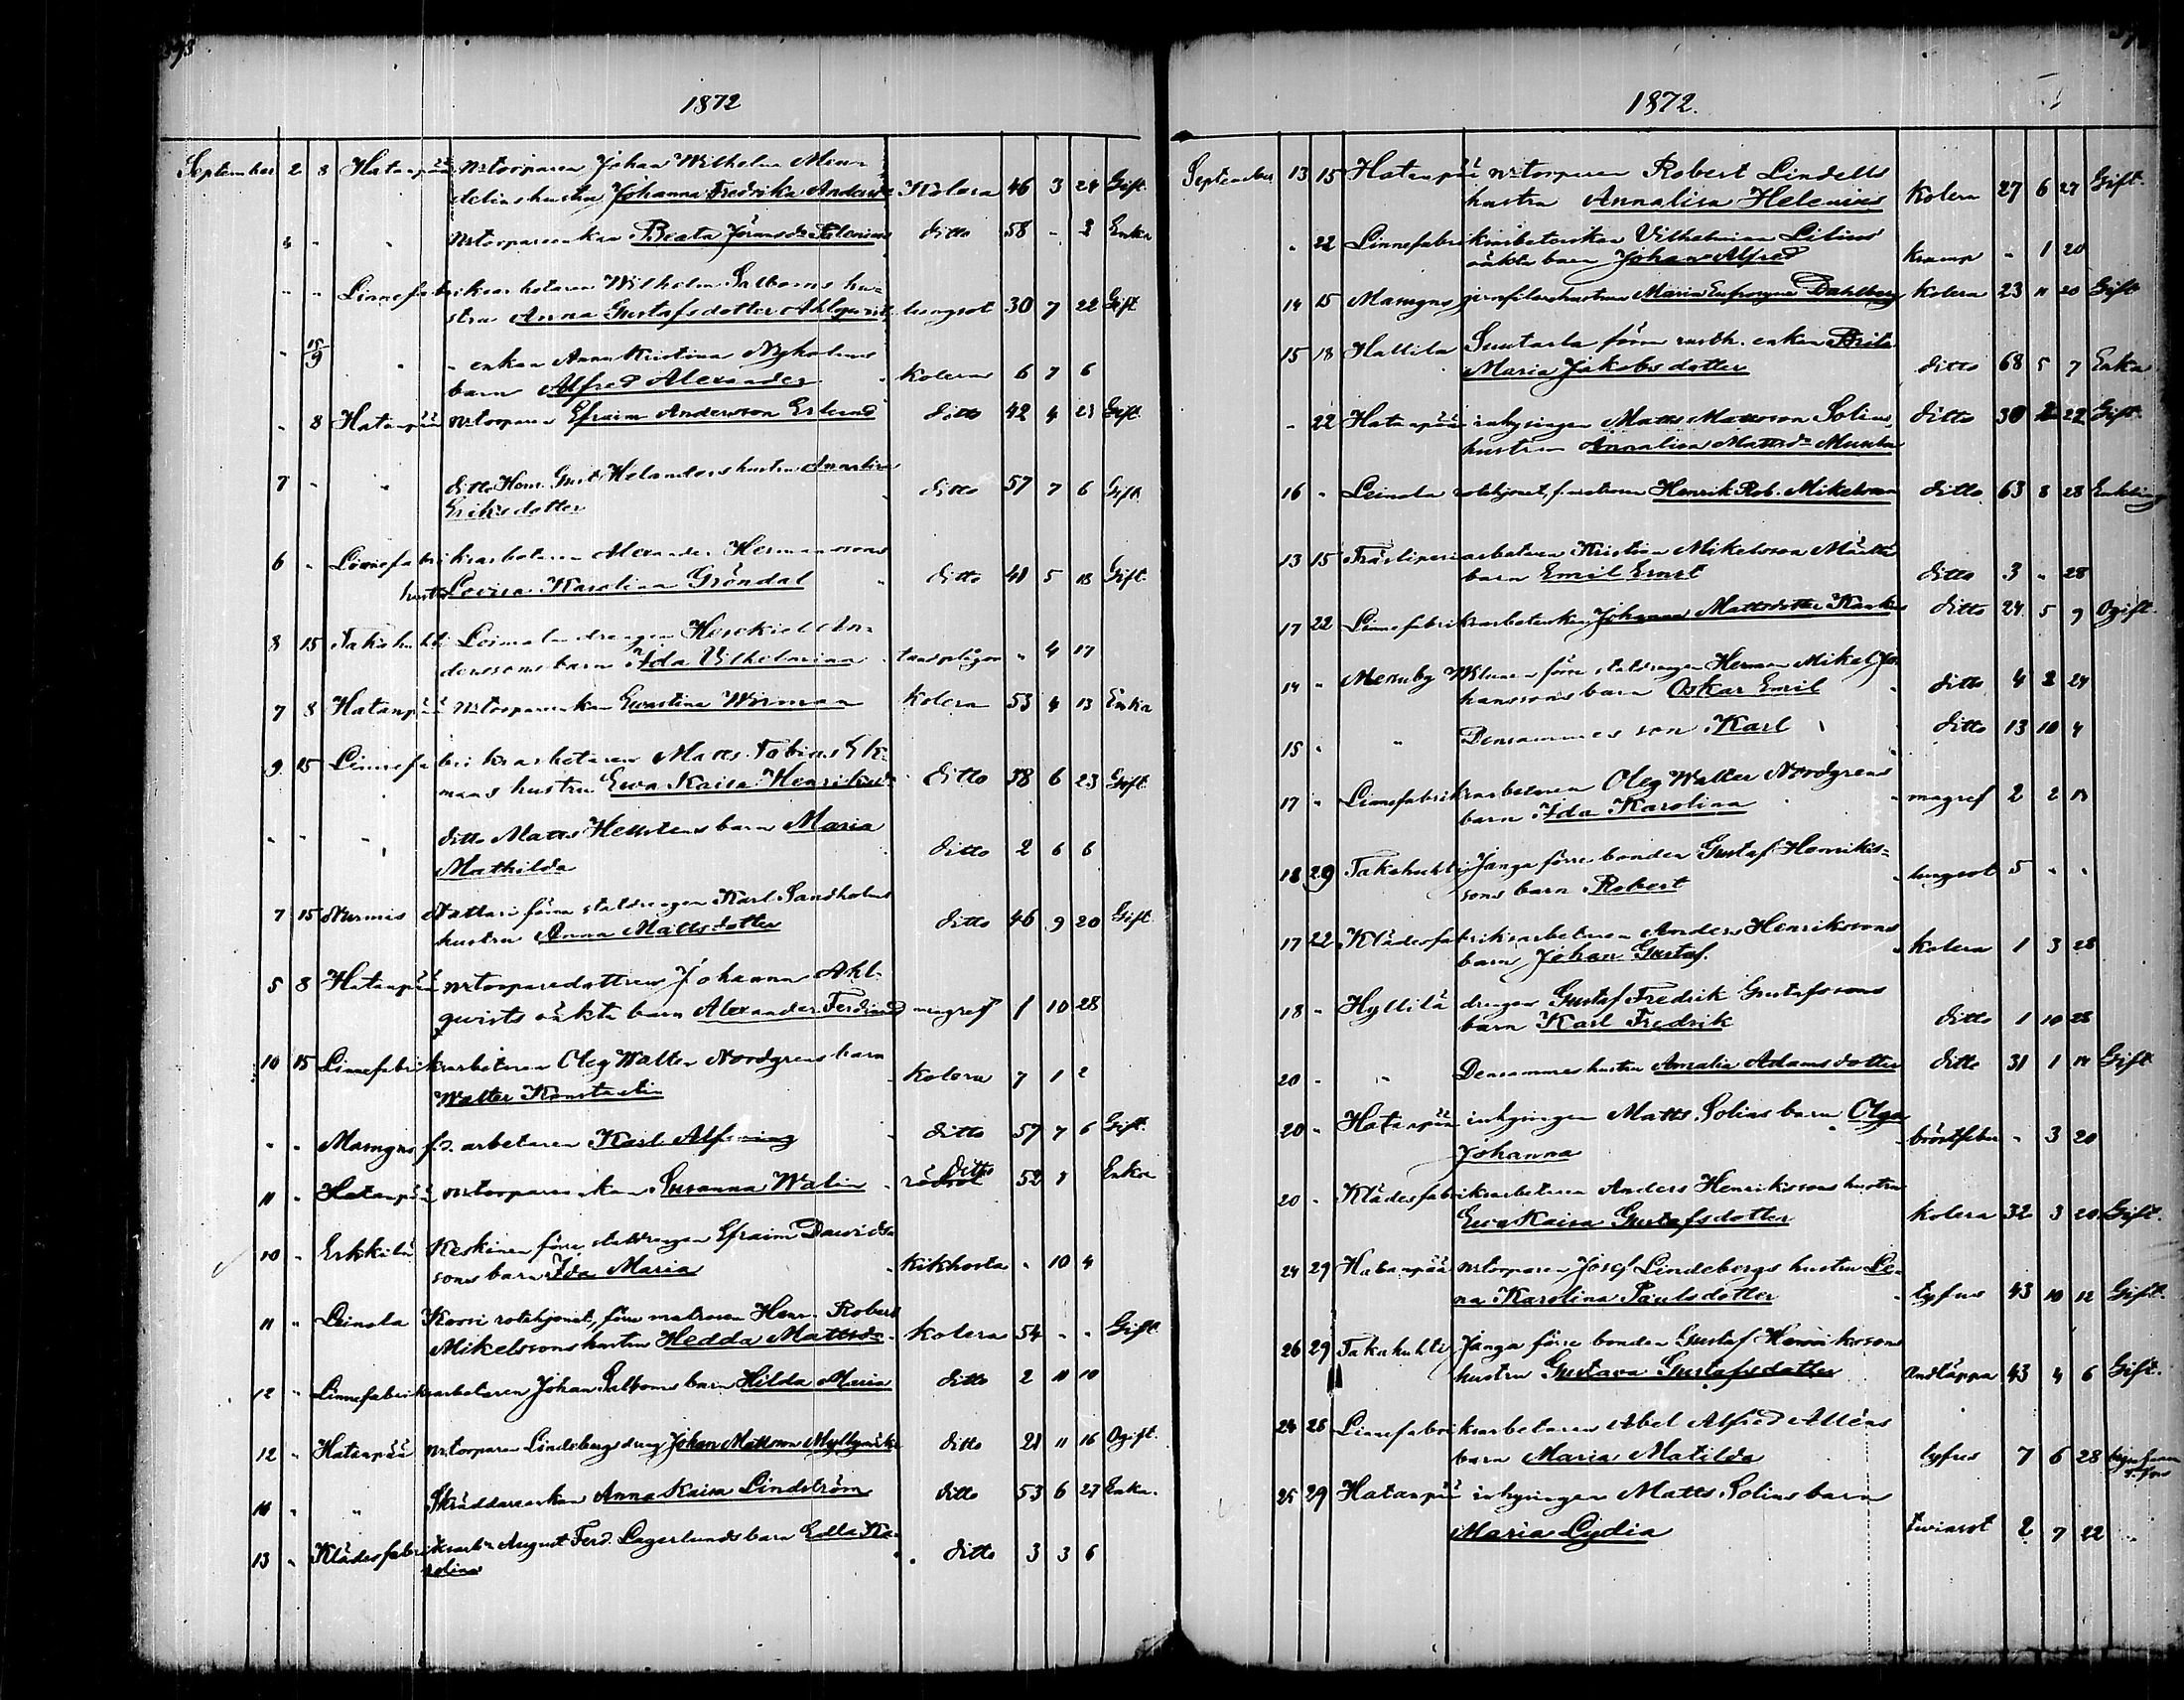 1872
September 2 8 Hatanpää Mtorparen Johan Wilhelm
hustru Johanna Fredrika Andersdr Kolera 46 3 24 Gift
Mtorpareenkan Beata Göransdr ditto 58 - 2 Enka
" " Linnefabriksarbetaren Wilhelm Salboms hu-
stru Anna Gustafsdotter Ahlqvist lungsot 30 7 22 Gift
" 15/9 " " enkan Anna Kristina Nyholms
barn Alfred Alexander kolera 6 7 6
" 8 Hatanpää Mtorparen Efraim Andersson Erlund ditto 42 4 23 Gift
7 " " ditto Henr. Gust. Helanders hustru Annalisa
Eriksdotter ditto 57 7 6 Gift
6 " Linnefabriksarbetaren Alexander Hermanssons
hustru Lovisa Karolina Gröndal ditto 41 5 18 Gift
8 15 Takahuhti Loimala drängen Heskiel An-
derssons barn Ida Vilhelmina tandplågor " 4 17
7 8 Hatanpää Mtorpareenkan Ewastina Wirman Kolera 53 4 13 Enka
9 15 Linnefabriksarbetaren Matts Tobias Ek-
mans hustru Ewa Kaisa Henriksdr ditto 38 6 23 Gift
" " " ditto Matts Hellstens barn Maria
Mathilda ditto 2 6 6
7 15 Nurmis Nattari förre statdrängen Karl Sandholms
hustru Anna Mattsdotter ditto 46 9 20 Gift
5 8 Hatanpää Mtorparedottren Johanna Ahl-
qvists oäkta barn Alexander Ferdinand magref 1 10 28
10 15 Linnefabriksarbetaren Oleg Walter Nordgrens barn
Walter Konstantin Kolera 7 1 2
" " Mamgns f.d. arbetaren Karl Alfming ditto 57 7 6 Gift
11 " Hatanpää Mtorpareenkan Susanna Walin rödsot ditto 52 8 Enka
10 " Erkkilä Keskinen förre statdrängen Efraim Davids-
sons barn Ida Maria Kikhosta " 10 4
11 " Leinola Koori rotehjonet, förre matrosen Henr. Robert
Mikelssons hustru Hedda Mattsdr Kolera 54 " " Gift
12 " Linnefabriksarbetaren Johan Salboms barn Hilda Maria ditto 2 11 10
12 " Hatanpää Mtorparen Lindebergs dräng Johan Mattsson ditto 21 11 16 Ogift
10 " " Skräddareenkan Anna Kaisa Lindström ditto 53 6 27 Enka.
13 " Klädesfabriksarbn August Ferd. Lagerlunds barn Edla Ka-
rolina ditto 3 3 6
1872.
September 13 15 Hatanpää Mtorparen Robert Lindells
hustru Annalisa Helenius Kolera 27 6 27 Gift.
" 22 Linnefabriksarbeterskan Vilhelmina Lilius
oäkta barn Johan Alfred Kramp " 1 20
14 15 Mamgns jernfilarehustrun Maria Eufrosyne Dahlberg Kolera 23 11 20 Gift
15 18 Hallila Suutarla förra rusth. enkan Brita
Maria Jakobsdotter ditto 68 5 7 Enka
" 22 Hatanpää inhysingen Matts Mattsson Solins
hustru Annalisa Mattsdr ditto 30 22 Gift.
16 " Leinola rotehjonet, f. matrosen Henrik Rob. Mikelsson ditto 63 8 28 Enkling
13 15 Träsliperiarbetaren Kristian Mikelsson
barn Emil Ernst ditto 3 " 28
17 22 Linnefabriksarbeterskan Johanna Mattsdotter ditto 24 5 9 Ogift.
14 " Messuby förre statdrängen Herman Mikel Jo-
hanssons barn Oskar Emil ditto 4 2 24
15 " " Densammes son Karl ditto 13 10 4
17 " Linnefabriksarbetaren Oleg Walter Nordgrens
barn Ida Karolina magref 2 2 13
18 29 Takahuhti Janga förre bonden Gustaf Henriks-
sons barn Robert lungsot 5 " "
17 22 Klädesfabriksarbetaren Anders Henrikssons
barn Johan Gustaf. Kolera 1 3 28
18 " Hyllilä drängen Gustaf Fredrik Gustafssons
barn Karl Fredrik ditto 1 10 28
20 " " Densammes hustru Amalia Adamsdotter ditto 31 1 14 Gift
20 " Hatanpää inhysingen Matts Solins barn Olga
Johanna bröstfeber " 3 20
20 " Klädesfabriksarbetaren Anders Henrikssons hustru
Ewa Kaisa Gustafsdotter Kolera 32 3 20 Gift.
24 29 Hatanpää Mtorparen Josef Lindebergs hustru Le-
na Karolina Paulsdotter tyfus 43 10 12 Gift.
26 29 Takahuhti Janga förre bonden Gustaf Henrikssons
hustru Gustava Gustafsdotter Andtäppa 43 4 6 Gift.
24 28 Linnefabriksarbetaren Abel Alfred Alléns
barn Maria Matilda tyfus 7 6 28
25 29 Hatanpää inhysingen Matts Solins barn
Maria Lydia tvinsot 2 7 22